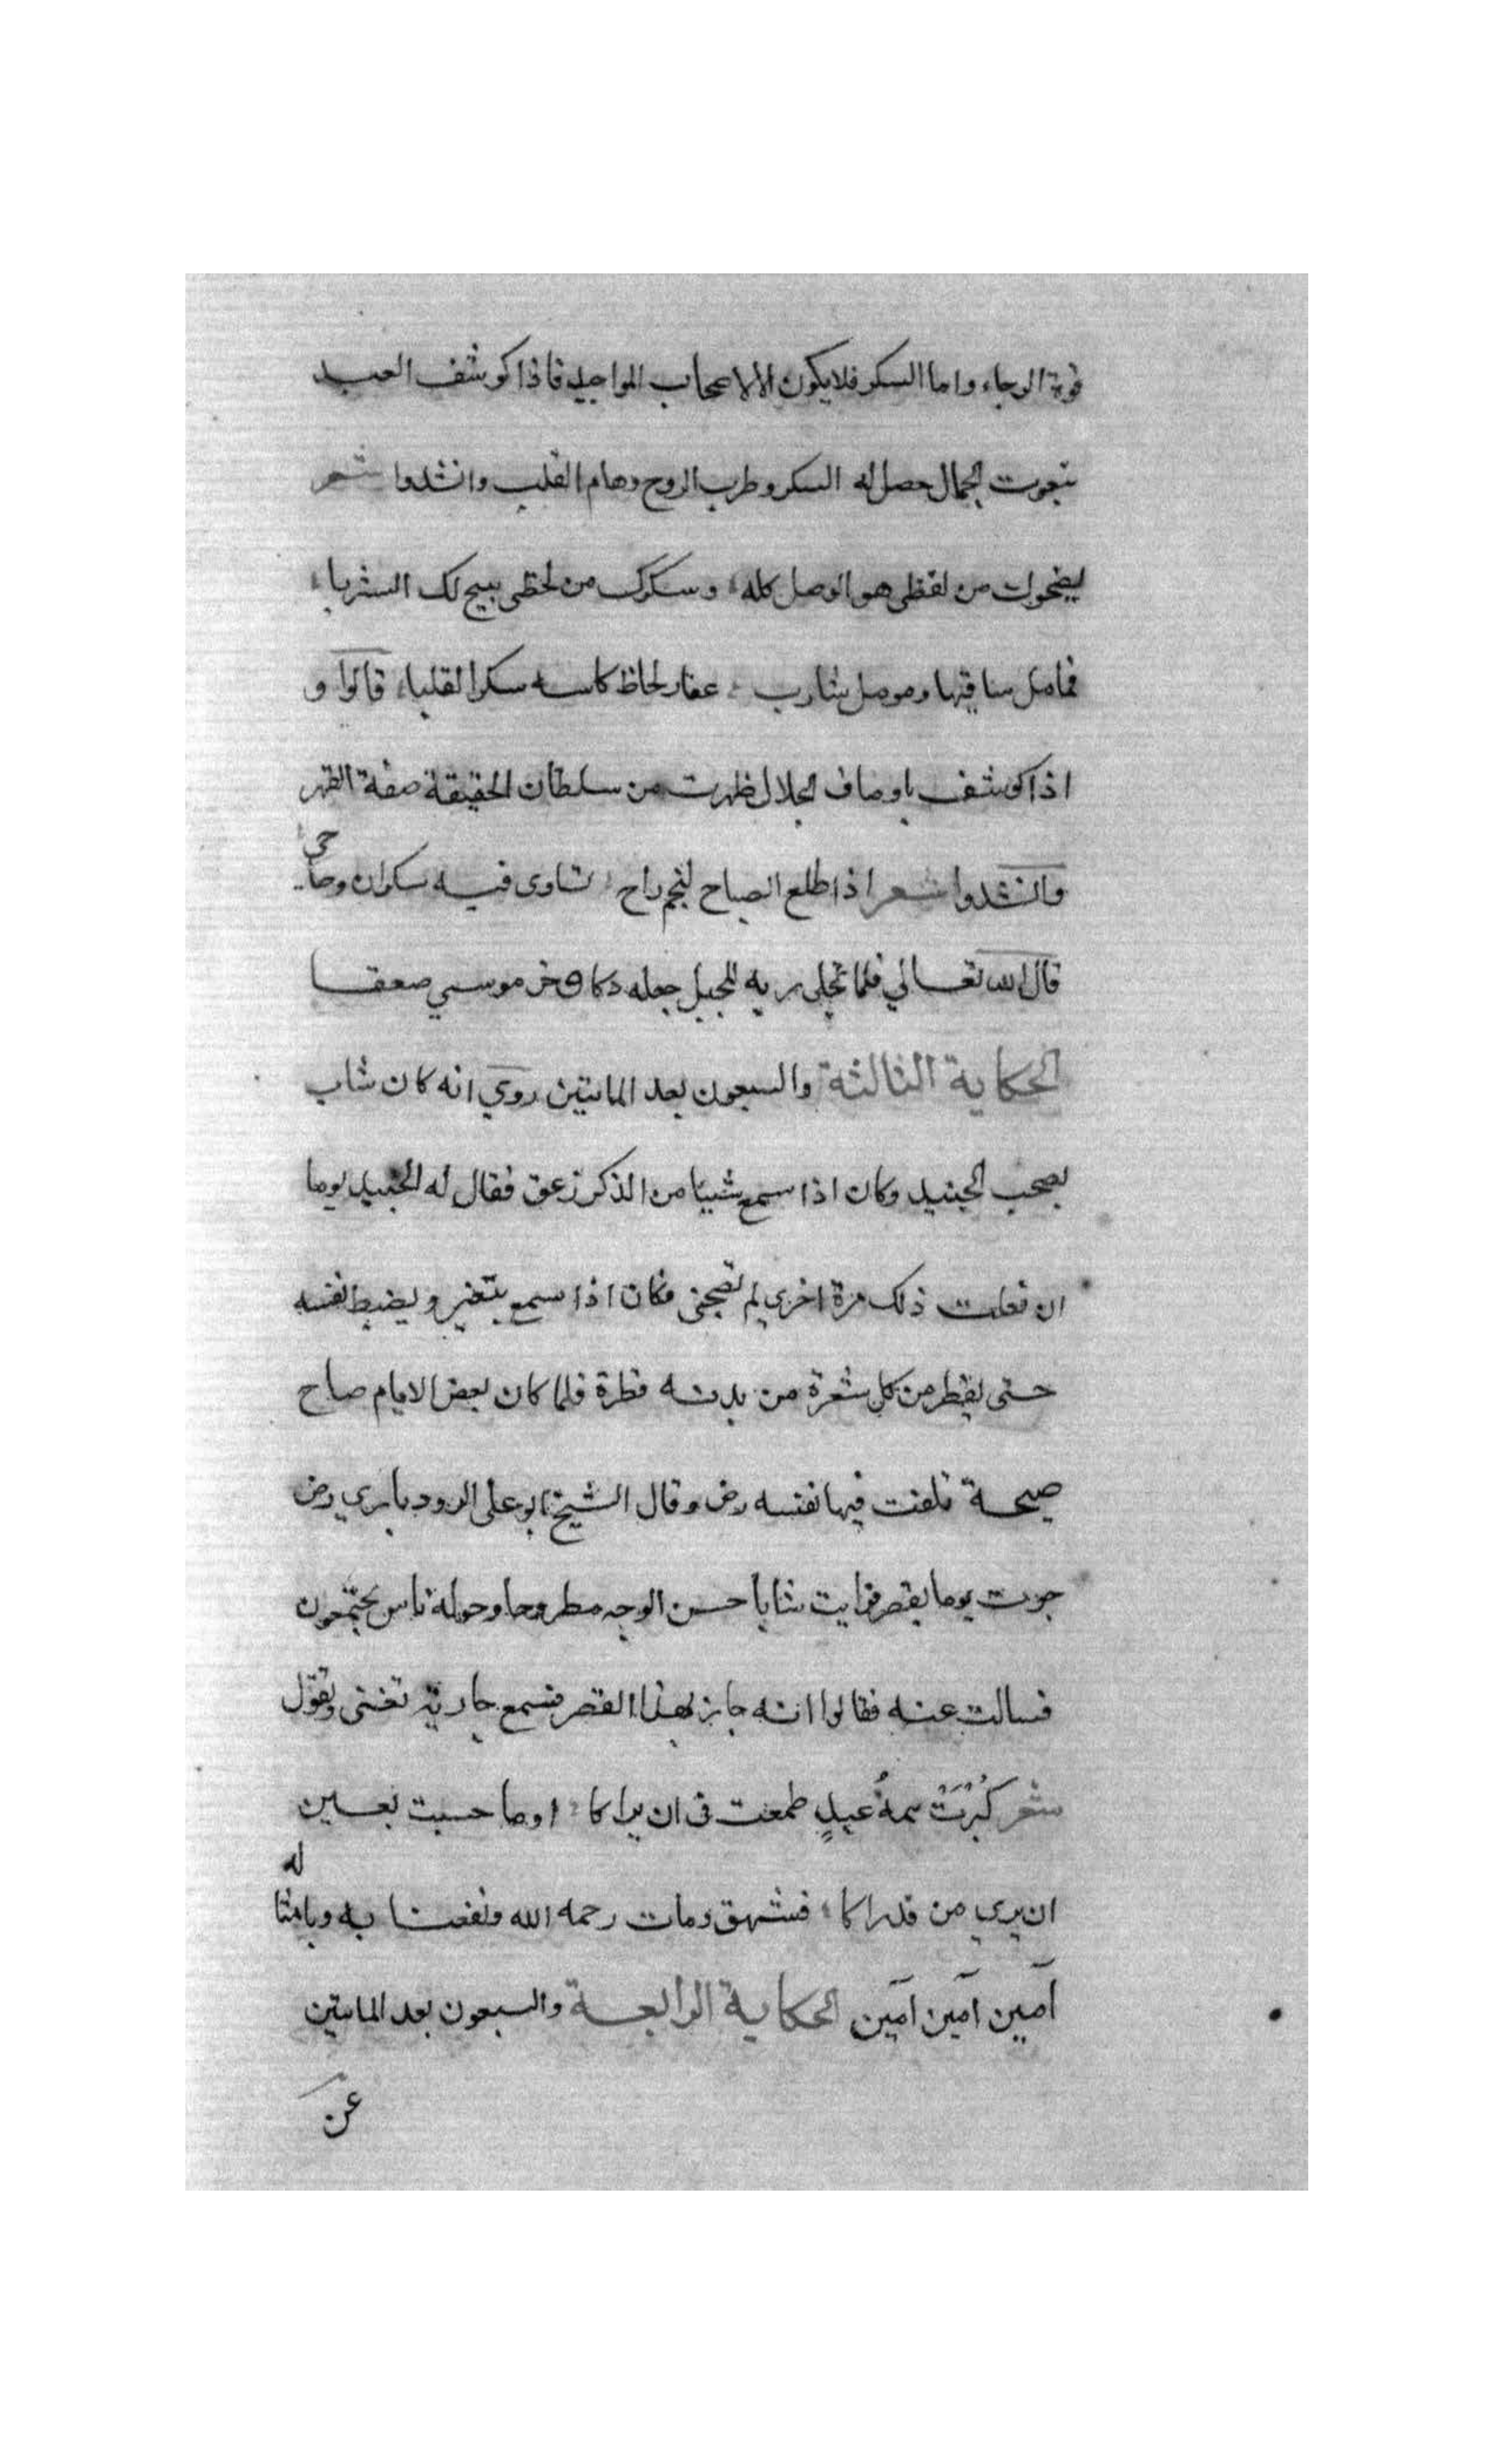 قوة الرجاء واما السكر فلا يكون الا لاصحاب المواجيد فاذا كوشف العبد
بنعوت الجمال حصل له السكر وطرب الروح وهام القلب وانشدوا شعر
لصحوك من لفظى هو الوصل كله وسكرك من لحظى يبيح لك الشربا
فما مل ساقيها وما مل شارب عقار لحاظ كاسه سكر القلبا قالوا و
اذا كوشف باوصاف الجلال ظهرت من سلطان الحقيقة صفة القهر
وانشدوا شعر اذا طلع الصباح لنجم راح تساوى فيه سكران وصاحى
قال الله تعالي فلما تجلى ربه للجبل جعله دكا وخر موسي صعقا
الحكاية الثالثة والسبعون بعد المايتين روي انه كان شاب
يصحب الجنيد وكان اذا سمع شييا من الذكر زعق فقال له الجنيد يوما
ان فعلت ذلك مرة اخري لم تصحبنى فكان اذا سمع يتغير ويضبط نفسه
حتى يقطر من كل شعرة من بدنه قطرة فلما كان بعض الايام صاح
صيحة تلفت فيها نفسه رض وقال الشيخ ابو على الرودباري رض
جزت يوما بقصر فرايت شابا حسن الوجه مطروحا وحوله ناس يجتمعون
فسالت عنه فقالوا انه جاز بهذا القصر فسمع جارية تغنى وتقول
شعر كَبُرَتْ همةُ عبدٍ طمعت فى ان يراكا اوما حسبت لعين
ان يري من قد راكا فشهق ومات رحمه الله ونفعنا به وبامثاله
آمين آمين آمين الحكاية الرابعة والسبعون بعد المايتين
عن